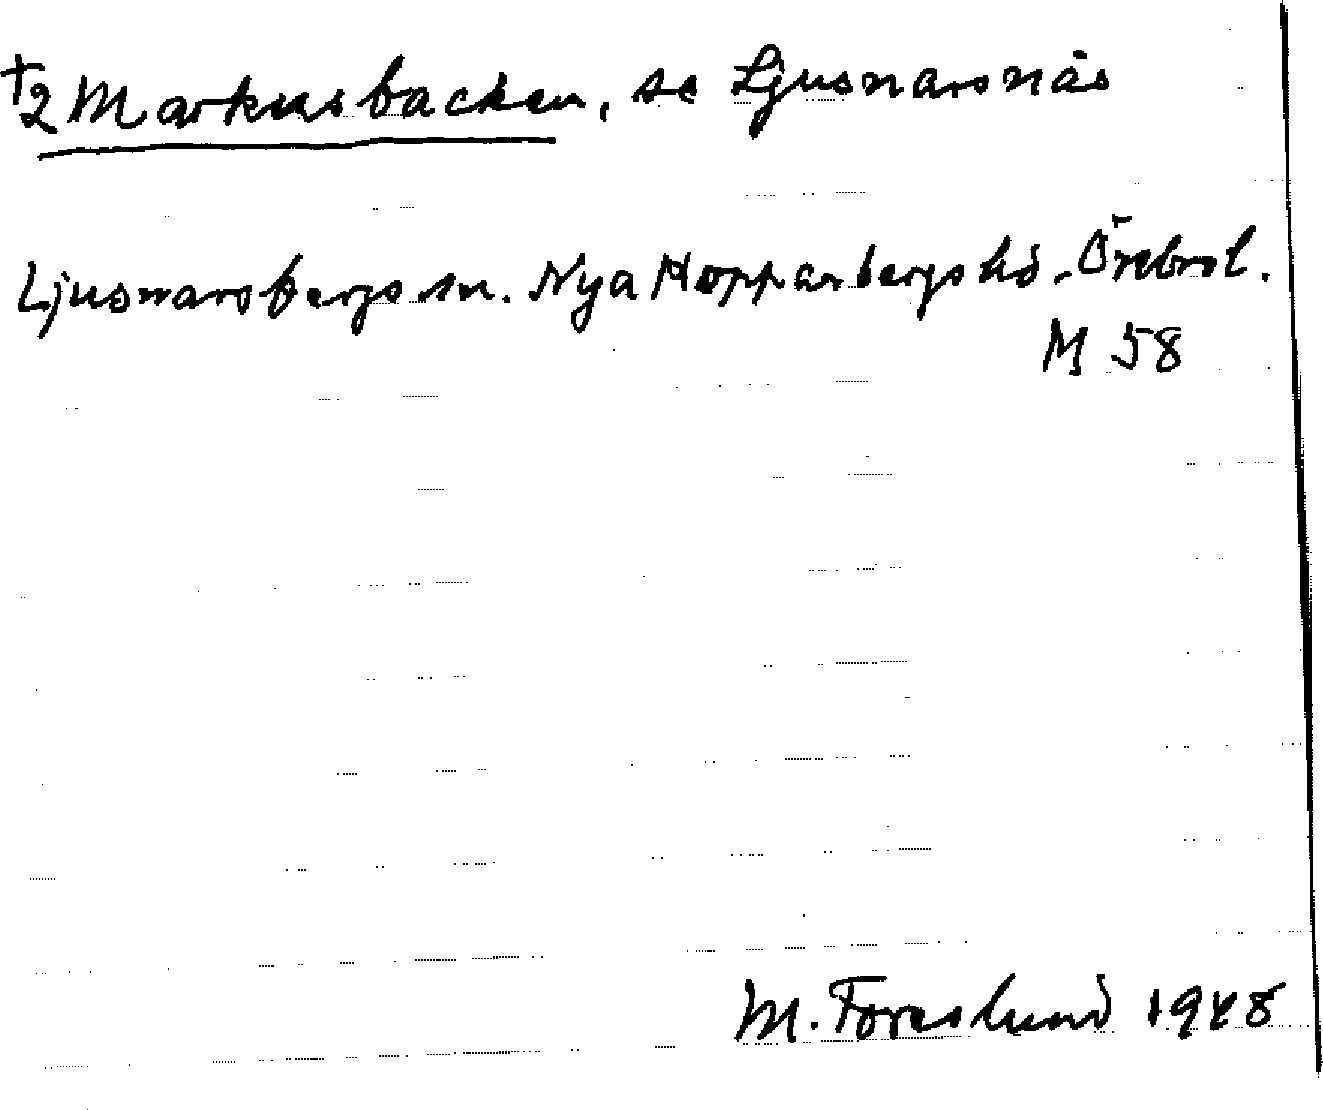 †2 Markusbacken, se Ljusnarsnäs
Ljusnarsbergs sn. Nya Kopparbergs hd. Örebro l.
M 58
M. Foreslund 1948